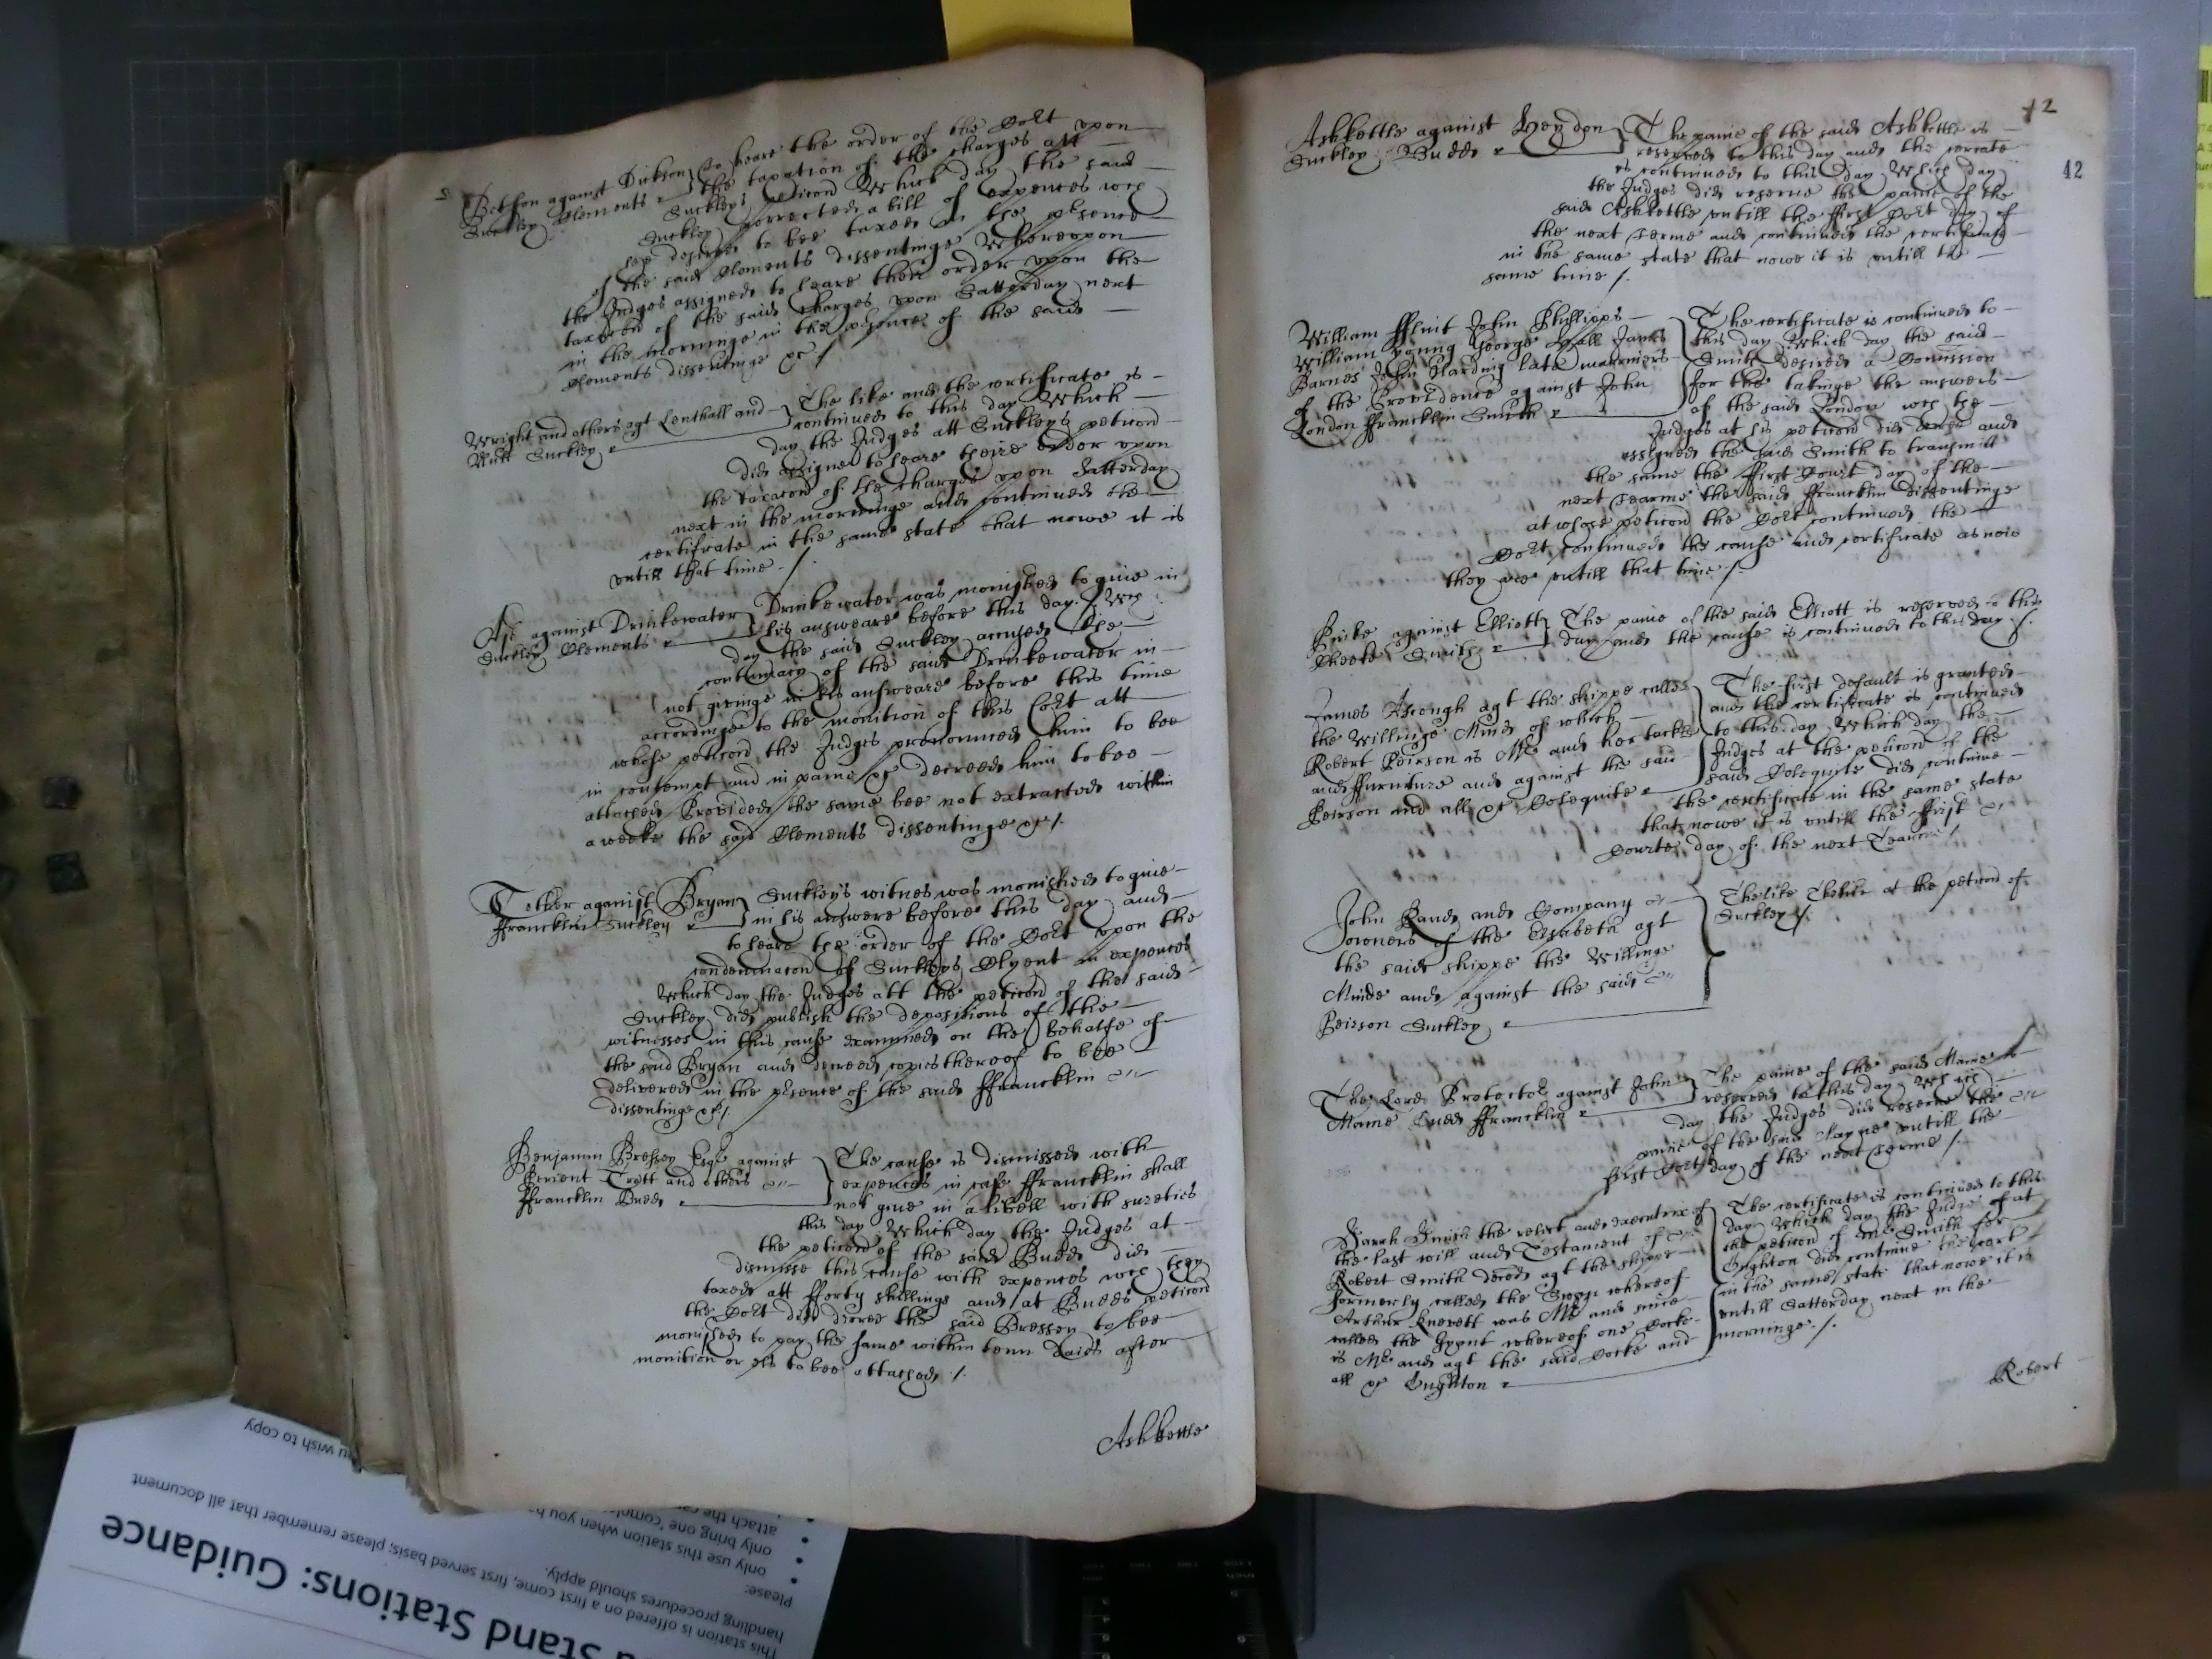 2. Betson against Dickson } To heare the order of the Cort upon
Suckley Clements } the taxation of the charges att
Suckley's peticon Which day the said
Suckley porrected a bill of expences wch
hee desired to bee taxed in the psence
of the said Clements dissentinge Whereupon
the Judges assigned to heare their order upon the
taxacon of the said charges upon Satterday next
in the morninge in the psence of the said
Clements dissentinge &c /.
Wright and others agt Lenthall and } The like and the certificate is
Nutt Suckley } continued to this day Which
day the Judges att Suckley's peticon
did assigne to heare theire order upon
the taxacon of the charges upon Satterday
next in the morninge and continued the
certificate in the same state that nowe it is
untill that time ./.
against Drinkewater } Drinkewater was monished to give in
Suckley Clements } his answeare before this day. Wch
day the said Suckley accused the
contumacy of the said Drinkewater in
not givinge in his answeare before this time
accordinge to the monition of this Cort att
whose peticon the Judges pronounced him to bee
in contempt and in paine &c decreed him to bee
attached Provided the same bee not extracted within
a weeke the said Clements dissentinge &c /.
Tether against Bryan } Suckley's witnes was monished to give
ffrancklin Suckley } in his answere before this day and
to heare the order of the Cort upon the
condemnacon of Suckleys Clyent in expences
Which day the Judges att the peticon of the said
Suckley did publish the depositions of the
witnesses in this cause examined on the behalfe of
the said Bryan and decreed copies thereof to bee
delivered in the psence of the said ffrancklin
dissentinge &c /.
Benjamin Bressey Esqr against } The cause is dismissed with
Perient Trott and others } expences in case ffrancklin shall
ffrancklin Budd } not give in a libell with sureties
this day Which day the Judges at
the peticon of the said Budd did
dismisse this cause with expences wch they
taxed att fforty shillings and at Budds peticon
the Cort did decree the said Bressey to bee
monished to pay the same within tenn daies after
monition or els to bee attached ./.
Ashkettle
42
42
Ashkettle against Heydon } The paine of the said Ashkettle is
Suckley Budd } reserved to this day and the certcate
is continued to this day Which day
the Judges did reserve the paine of the
said Ashkettle untill the ffirst Cort day of
the next Terme and continued the certificate
in the same state that nowe it is untill the
same time /.
William fflint John Phillipps } The certificate is continued to
William Young George Hall James } this day Which day the said
Barnes John Harding late marriners } Smith desired a Comission
of the Providence against John } for the takinge the answers
London ffrancklin Smith } of the said London wch the
Judges at his peticon did decree and
assigned the said Smith to transmitt
the same the ffirst Court day of the
next Tearme the said ffrancklin dissentinge
at whose peticon the Cort continued the
Cort continued the cause and certificate as now
they are untill that time /.
against Elliott } The paine of the said Elliott is reserved to this
Cheeke Smith } day and the cause is continued to this day /.
James Ascough agt the shippe called } The first default is granted
the Willinge Minde of which } and the certificate is continued
Robert Peirson is Mr and her tackle } to this day Which day the
and ffurniture and against the said } Judges at the peticon of the
Peirson and all &c Colequite } said Colequite did continue
the certificate in the same state
that nowe it is untill the ffirst
Courte day of the next Tearme /.
John Rand and Company } The like The like at the peticon of
owners of the Elizabeth agt } Suckley /.
the said shippe the Willinge
Minde and against the said
Peirson Suckley
The Lord Protector against John } The paine of the said Maine is
Maine Budd ffrancklin } reserved to this day Which
day the Judges did reserve the
paine of the said Mayne untill the
first Cort day of the next Terme /.
Sarah Smith the relict and executrix of } The certificate is continued to this
the last will and Testament of } day Which day the Judge of at
Robert Smith deced agt the shippe } the peticon of Mr Smith for
formerly called the whereof } Oughton did continue the cert
Arthur Knevett was Mr and nowe } in the same state that nowe it is
called the whereof one Cocke } untill Satterday next in the
is Mr and agt the said Cocke and } morninge ./.
all &c Oughton
Robert
Stand Stations: Guidance
This station is offered on a first come, first served basis; please remember that all document
handling procedures should apply.
Please:
only use this station when you
only bring one
attach the
wish to copy